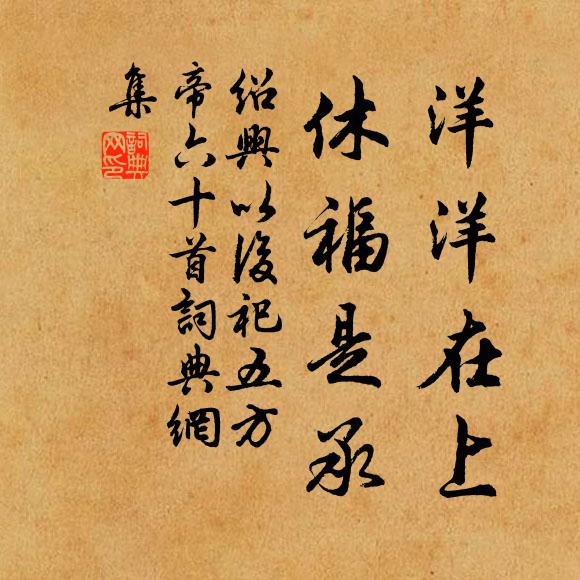 洋洋在上
休福是承
紹興以後祀五方
帝六十首詞典網
集
詞典
网印